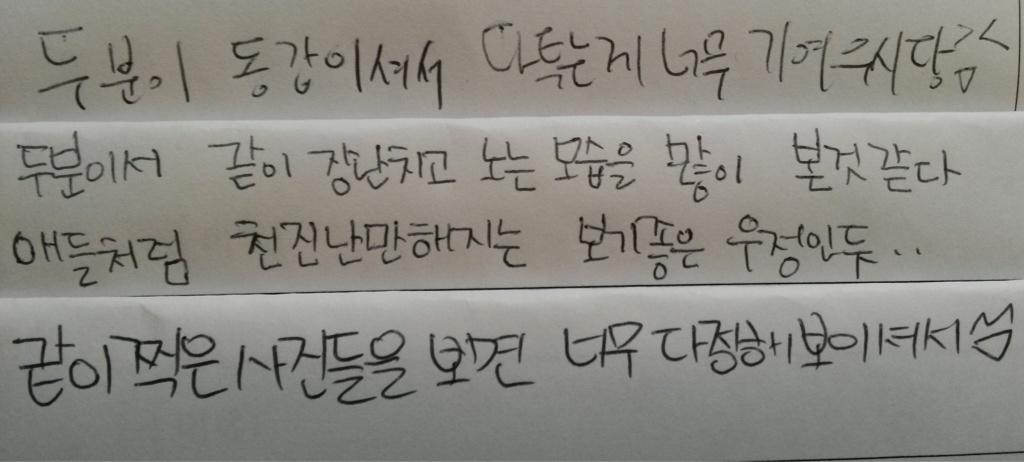 두분이 동갑이셔서 다투는게 너무 기여우시당ㅋㅋ
두분이서 같이 장난치고 노는 모습을 많이 본것같다
애들처럼 천진난만해지는 보기좋은 우정인듯..
같이찍은사진들을 보면 너무다정해보이셔서